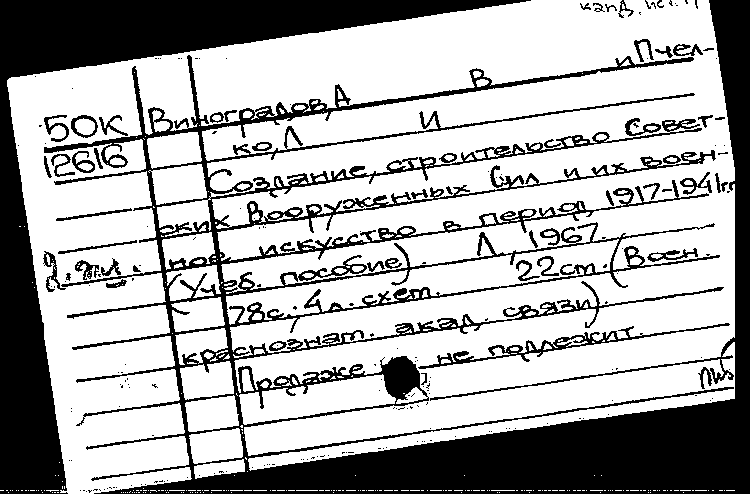 канд. ист. н
50К Виноградов, А В и Пчел-
12616 ко, Л И
Создание, строительство Совет-
ских Вооруженных Сил и их воен-
ное искусство в период 1917-1941гг
2.эпл. (Учеб. пособие). Л, 1967.
78с.; 4л. схем. 22см. (Воен.
краснознам. акад. связи).
Продаже не подлежит.